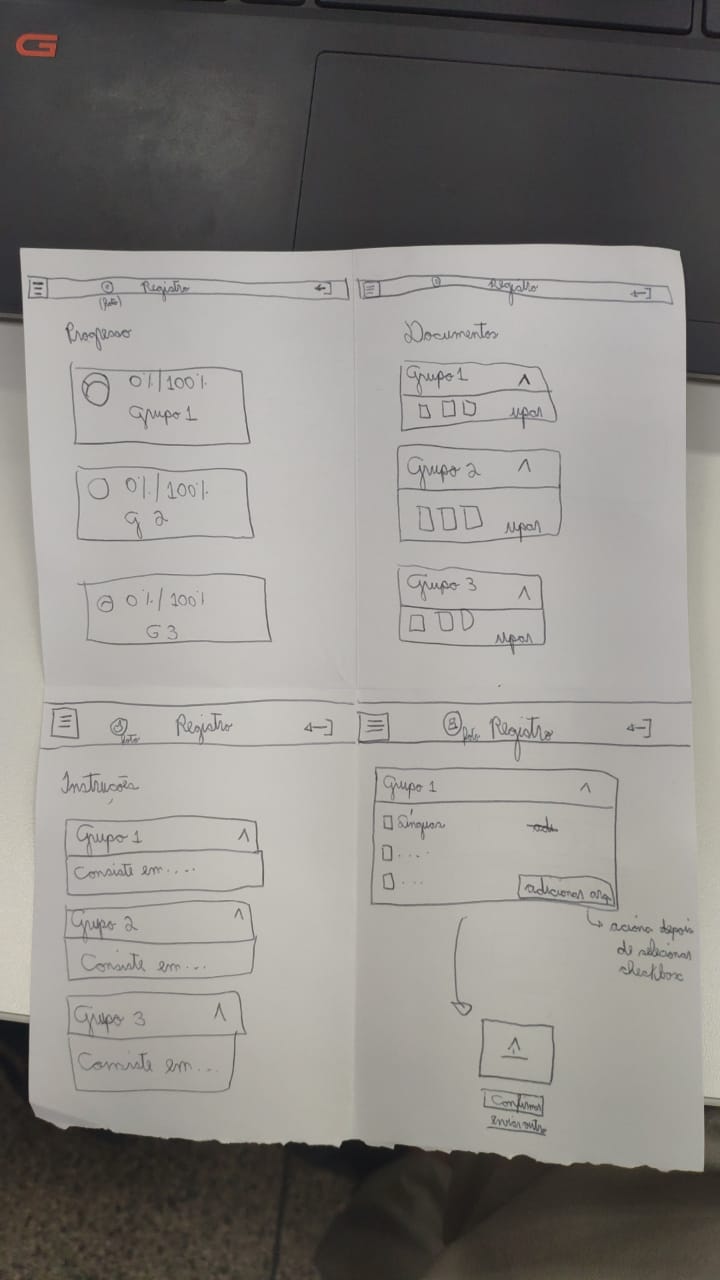 Registro
(foto)
Progresso
0%/100%
Grupo 1
0%/100%
G 2
0%/100%
G 3
Registro
Documentos
Grupo 1
upar
Grupo 2
upar
Grupo 3
upar
foto
Registro
Instruções
Grupo 1
Consiste em....
Grupo 2
Consiste em...
Grupo 3
Consiste em...
foto Registro
Grupo 1
Línguas
....
...
adicionar arq
aciona depois
de selecionar
checkbox
Confirmar
enviar outro